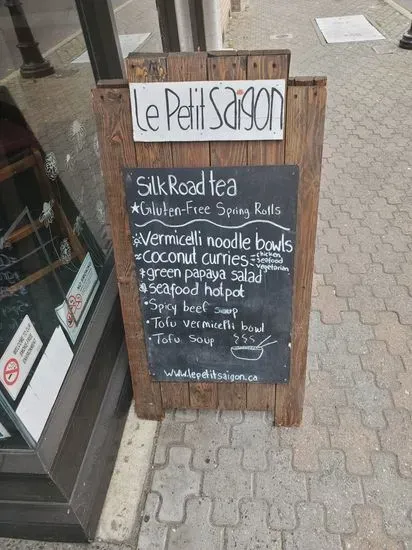 Le Petit Saigon
Silk Road tea
★Gluten-Free Spring Rolls
Vermicelli noodle bowls
coconut curries
chicken
seafood
vegetarian
green papaya salad
seafood hotpot
• Spicy beef soup
• Tofu vermicelli bowl
• Tofu soup
www.lepetitsaigon.ca
WELCOME TO OUR
SMOKE-FREE
ENVIRONMENT